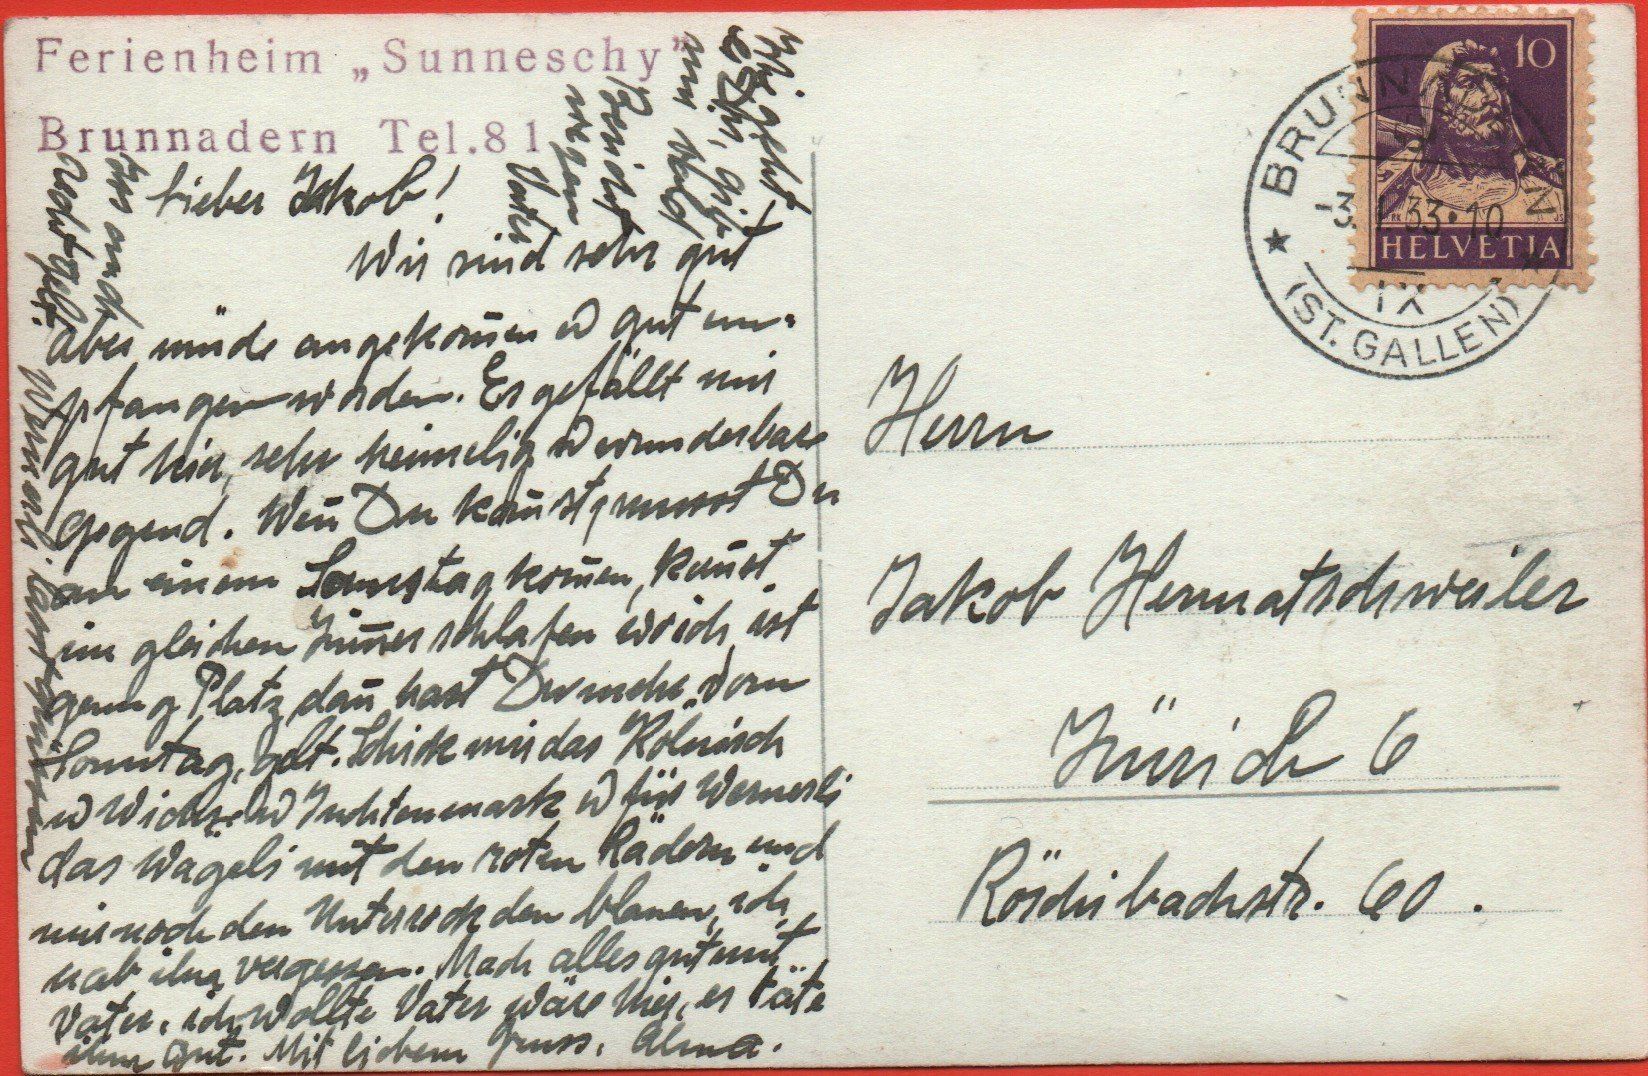 Ferienheim „Sunneschy"
Brunnadern Tel.81
Lieber Jakob!
Wir sind sehr gut
aber müde angekom̄en u gut em-
pfangen worden. Es gefällt mir
gut hier, sehr heimelig u wunderbare
Gegend. Wen̄ Du kan̄st, musst Du
an einem Samstag kom̄en, kan̄st
im gleichen Zim̄er schlafen wo ich, ist
genug Platz, dan̄ hast Du mehr vom
Sonntag, gelt. Schick mir das Kölnisch
u Wichse u Juchtenmark u für Wernerli
das Wägeli mit den roten Rädern und
mir noch den Unterrock den blauen, ich
hab ihn vergessen. Mach alles gut mit
Vater, ich wollte Vater wäre hier, es täte
ihm gut. Mit liebem Gruss, Alma.
Wernerli lässt grüssen
Ihr geht
es Dir, gib
mir bald
Bericht
wegen
Vater
BRUNNADERN
-3. 33·10
IX
(ST. GALLEN)
10
HELVETIA
Herrn
Jakob Hermatschweiler
Zürich 6
Röschibachstr. 60.